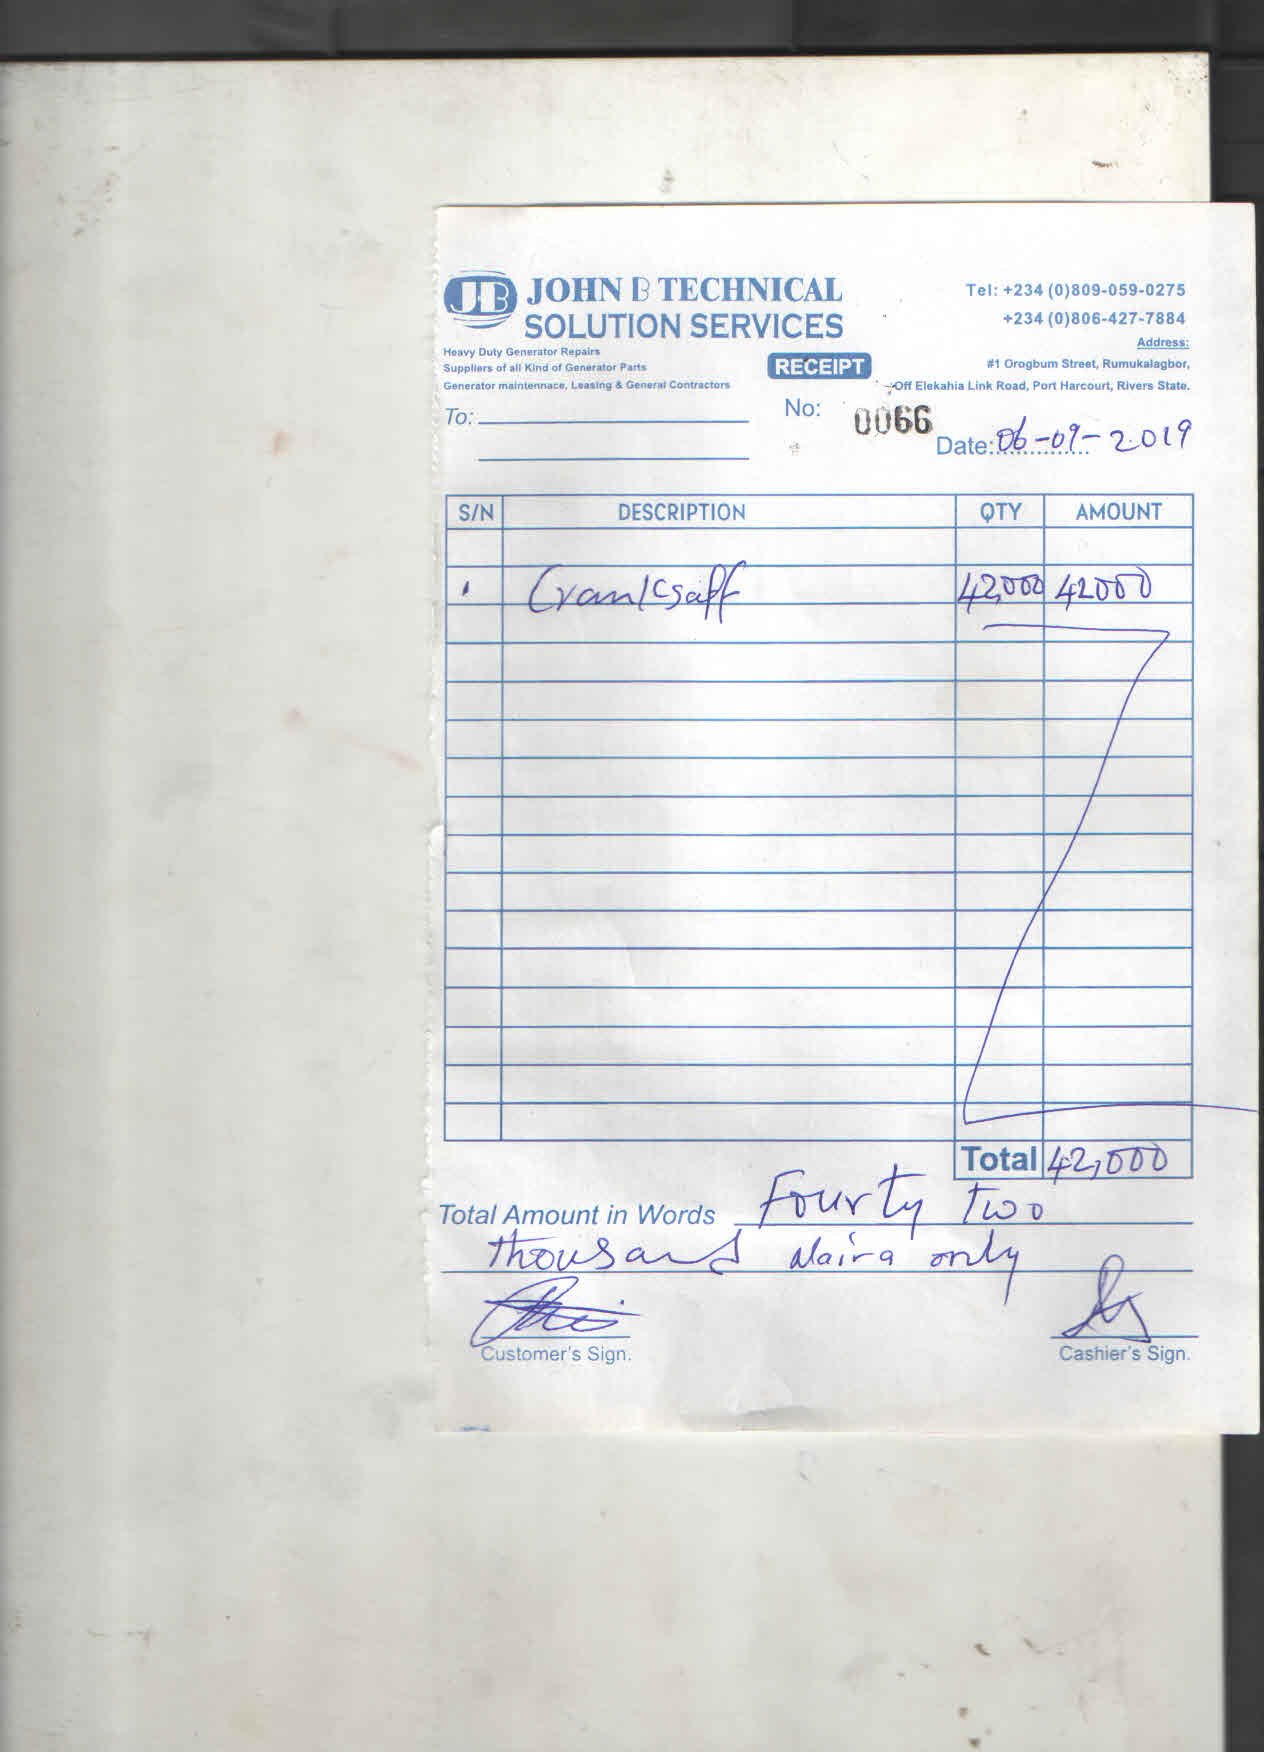 JB JOHN B TECHNICAL
SOLUTION SERVICES
Heavy Duty Generator Repairs
Suppliers of all Kind of Generator Parts
Generator maintennace, Leasing & General Contractors
RECEIPT
Tel: +234 (0)809-059-0275
+234 (0)806-427-7884
Address:
#1 Orogbum Street, Rumukalagbor,
Off Elekahia Link Road, Port Harcourt, Rivers State.
To:
No: 0066
Date: 06-09-2019
S/N DESCRIPTION QTY AMOUNT
1 Cranksaff 42,000 42000
Total 42,000
Total Amount in Words Fourty Two
thousand Naira only
Customer's Sign. Cashier's Sign.